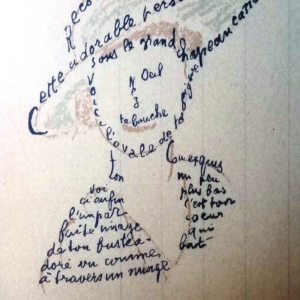 Reco
Cette adorable pers
sous le grand
chapeau canot
Oeil
Nez
ta bouche
Voici l'ovale de ta figure
ton cou exquis
voi
ci enfin
l'impar
faite image
de ton buste a
doré vu comme
à travers un nuage
un peu
plus bas
c'est ton
coeur
qui
bat